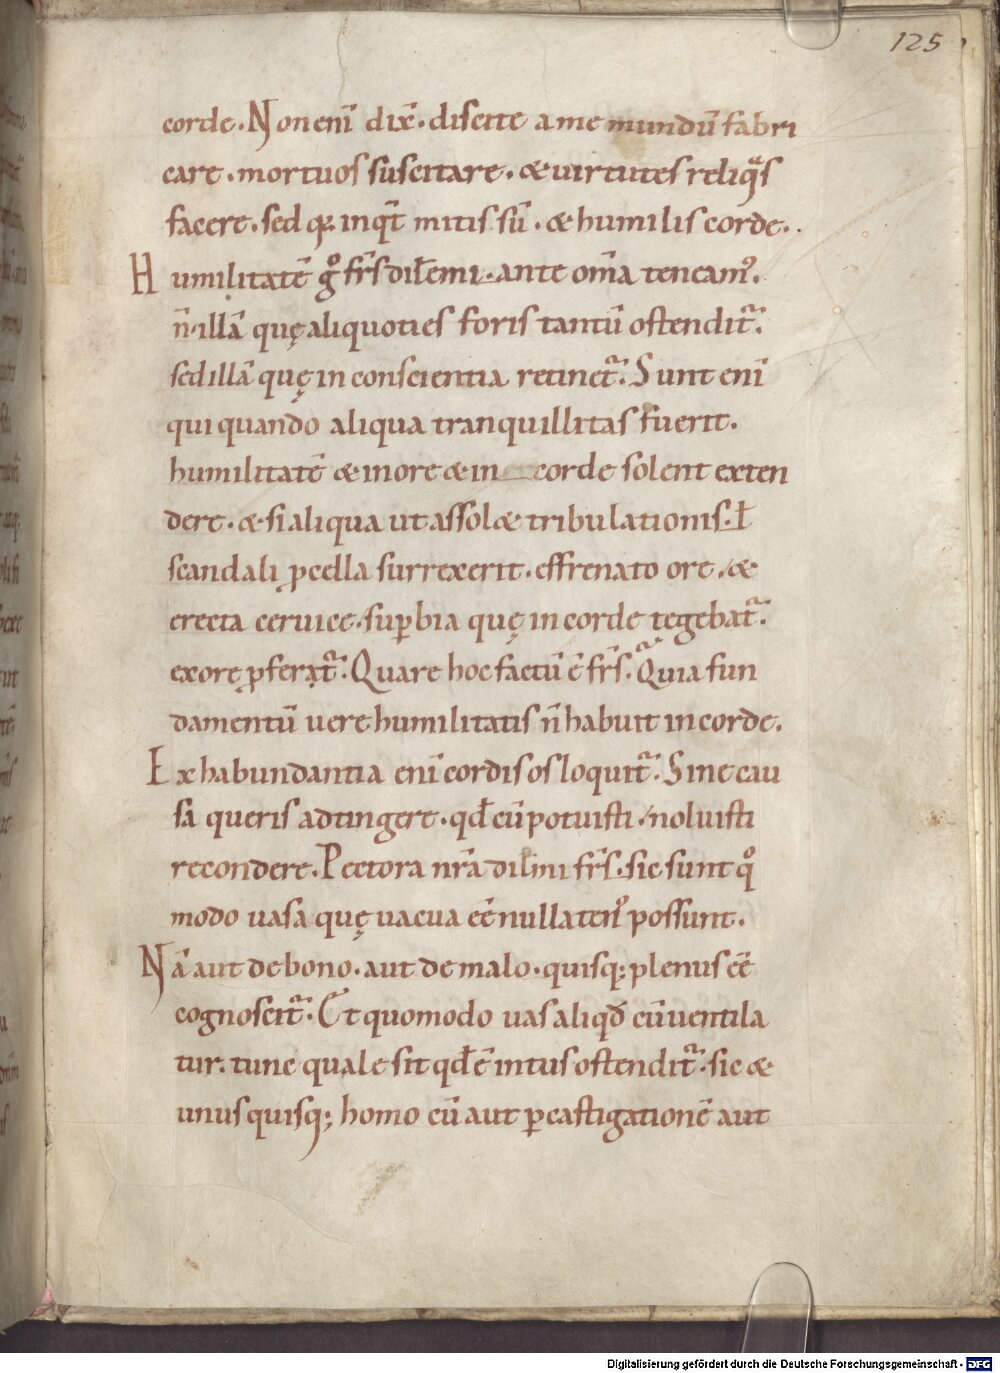 125
corde. Non eni̅ dix̅. discite a me mundu̅ fabri
care. mortuos suscitare. & uirtutes reliq̅s
facere. sed q; inq̅t mitis su̅. & humilis corde.
Humilitate̅ gͦ fr̅s dil̅emi. ante om̅a teneamꝰ.
n̅ illa̅ quę aliquoties foris tantu̅ ostendit᷑.
sed illa̅ quę in conscientia retinet᷑. Sunt eni̅
qui quando aliqua tranquillitas fuerit.
humilitate̅ & in ore & in corde solent exten
dere. & si aliqua ut assol& tribulationis. ł
scandali ꝓcella surrexerit. effrenato ore. &
erecta ceruice. suꝑbia quę in corde tegebat᷑.
ex ore ꝓferat᷑. Quare hoc factu̅ e̅ fr̅s. Quia fun
damentu̅ uere humilitatis n̅ habuit in corde.
Ex habundantia eni̅ cordis os loquit᷑. Sine cau
sa queris adtingere. qđ cu̅ potuisti noluisti
recondere. Pectora nr̅a dil̅mi fr̅s. sic sunt qͦ
modo uasa quę uacua ee̅ nullatenꝰ possunt.
Na̅ aut de bono. aut de malo. quisq; plenus ee̅
cognoscit᷑. Et quomodo uas aliqđ cu̅ uentila
tur. tunc quale sit qđ e̅ intus ostendit᷑. sic &
unusquisq; homo cu̅ aut ꝑ castigatione̅ aut
Digitalisierung gefördert durch die Deutsche Forschungsgemeinschaft - DFG